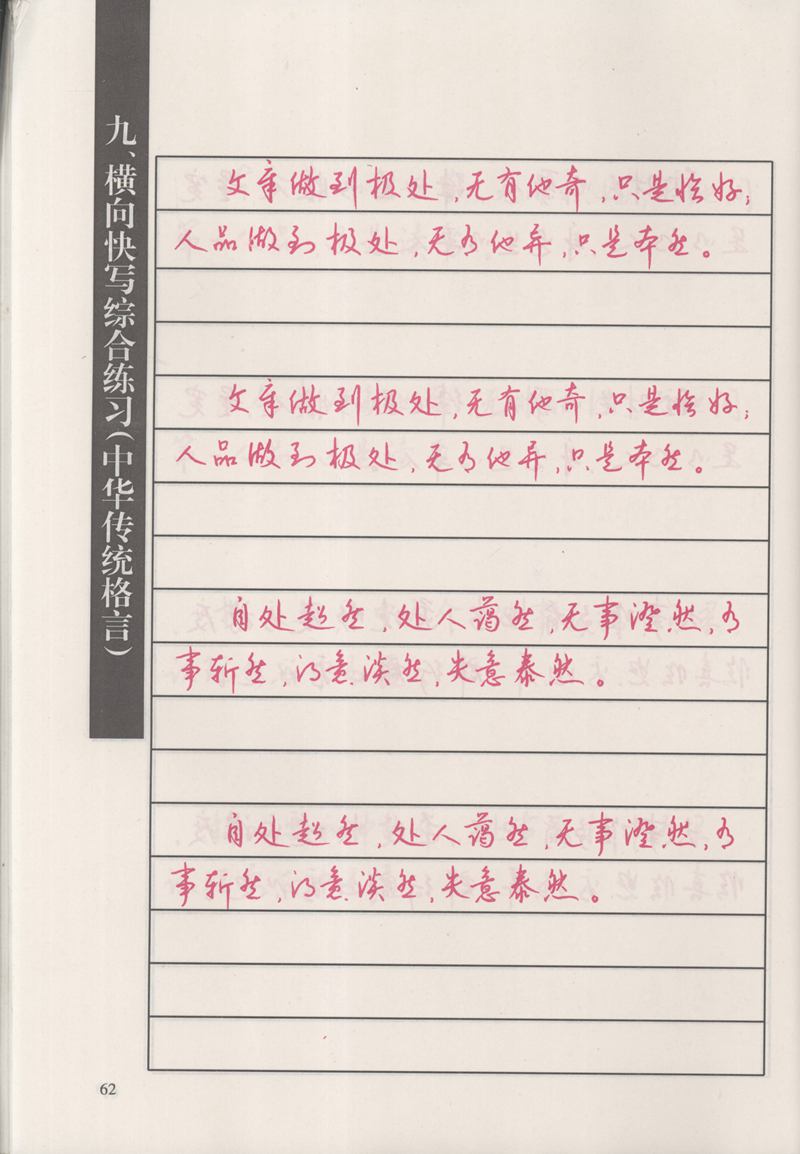 九、横向快写综合练习(中华传统格言)
文章做到极处,无有他奇,只是恰好;
人品做到极处,无有他异,只是本然。
文章做到极处,无有他奇,只是恰好;
人品做到极处,无有他异,只是本然。
自处超然,处人蔼然,无事澄然,有
事斩然,得意淡然,失意泰然。
自处超然,处人蔼然,无事澄然,有
事斩然,得意淡然,失意泰然。
62